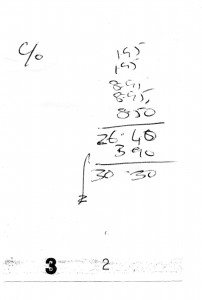 c/o
195
195
8.95
8.95
850
26.40
3 90
30.30
3 2